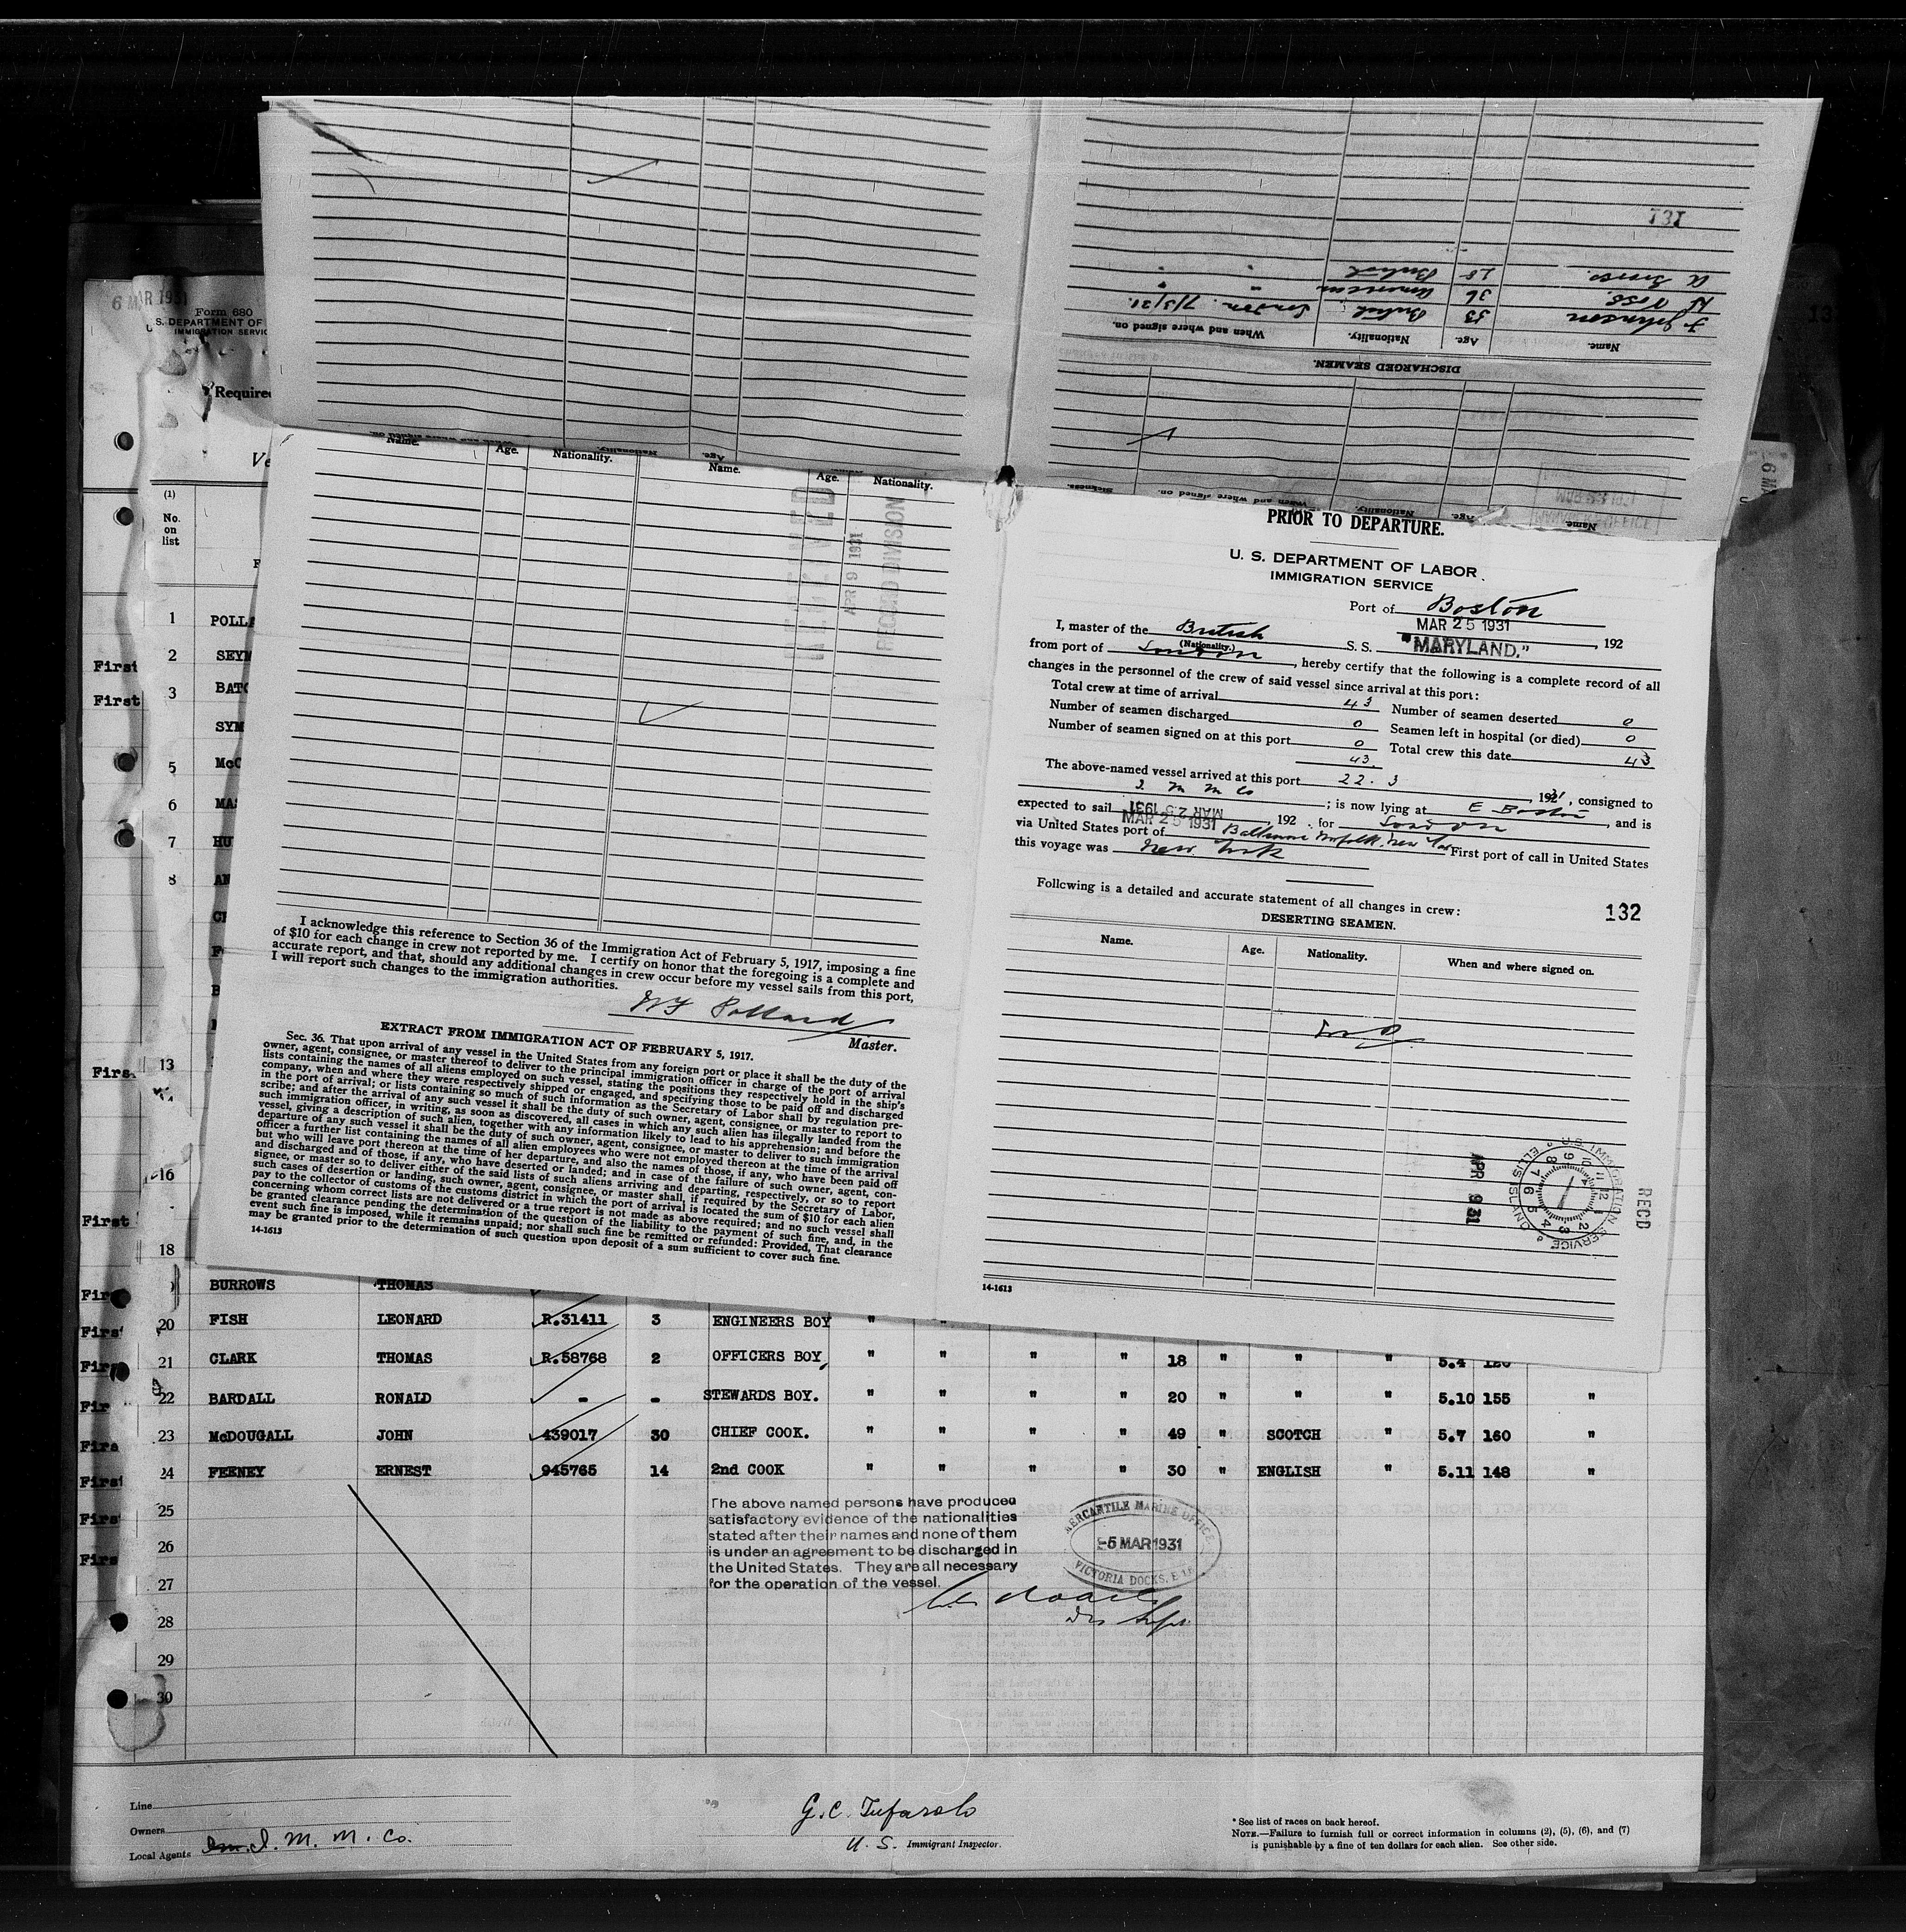 131
A
28
British
"
"
L. Ross
36
American
"
"
J. Johnson
53
British
London. 7/3/31.
Name. Age. Nationality. When and where signed on.
DISCHARGED SEAMEN.
6 MAR 1931
Form 680
S. DEPARTMENT OF
IMMIGRATION SERVIC
Require
Ve
(1)
No.
on
list
Name. Age. Nationality. Name. Age. Nationality.
RECEIVED
APR 9 1931
RECORD DIVISION
1 POLLA
2 SEYM
First
3 BATC
First
SYM
5 McC
6 MAS
7 HU
8 AN
13
16
18
I acknowledge this reference to Section 36 of the Immigration Act of February 5, 1917, imposing a fine
of $10 for each change in crew not reported by me. I certify on honor that the foregoing is a complete and
accurate report, and that, should any additional changes in crew occur before my vessel sails from this port,
I will report such changes to the immigration authorities.
W F Pollard
Master.
EXTRACT FROM IMMIGRATION ACT OF FEBRUARY 5, 1917.
Sec. 36. That upon arrival of any vessel in the United States from any foreign port or place it shall be the duty of the
owner, agent, consignee, or master thereof to deliver to the principal immigration officer in charge of the port of arrival
lists containing the names of all aliens employed on such vessel, stating the positions they respectively hold in the ship's
company, when and where they were respectively shipped or engaged, and specifying those to be paid off and discharged
in the port of arrival; or lists containing so much of such information as the Secretary of Labor shall by regulation pre-
scribe; and after the arrival of any such vessel it shall be the duty of such owner, agent, consignee, or master to report to
such immigration officer, in writing, as soon as discovered, all cases in which any such alien has illegally landed from the
vessel, giving a description of such alien, together with any information likely to lead to his apprehension; and before the
departure of any such vessel it shall be the duty of such owner, agent, consignee, or master to deliver to such immigration
officer a further list containing the names of all alien employees who were not employed thereon at the time of the arrival
but who will leave port thereon at the time of her departure, and also the names of those, if any, who have been paid off
and discharged and of those, if any, who have deserted or landed; and in case of the failure of such owner, agent, con-
signee, or master so to deliver either of the said lists of such aliens arriving and departing, respectively, or so to report
such cases of desertion or landing, such owner, agent, consignee, or master shall, if required by the Secretary of Labor,
pay to the collector of customs of the customs district in which the port of arrival is located the sum of $10 for each alien
concerning whom correct lists are not delivered or a true report is not made as above required; and no such vessel shall
be granted clearance pending the determination of the question of the liability to the payment of such fine, and, in the
event such fine is imposed, while it remains unpaid; nor shall such fine be remitted or refunded: Provided, That clearance
may be granted prior to the determination of such question upon deposit of a sum sufficient to cover such fine.
14-1613
PRIOR TO DEPARTURE.
U. S. DEPARTMENT OF LABOR
IMMIGRATION SERVICE
Port of Boston
MAR 25 1931, 192
I, master of the British S. S. "MARYLAND."
(Nationality.)
from port of London, hereby certify that the following is a complete record of all
changes in the personnel of the crew of said vessel since arrival at this port:
Total crew at time of arrival 43 Number of seamen deserted 0
Number of seamen discharged 0 Seamen left in hospital (or died) 0
Number of seamen signed on at this port 0 Total crew this date 43
43.
The above-named vessel arrived at this port 22. 3, 1931, consigned to
I. M M Co; is now lying at E Boston, and is
expected to sail MAR 25 1931, 192 for London
via United States port of Baltimore Norfolk, New York First port of call in United States
this voyage was New York
Following is a detailed and accurate statement of all changes in crew:
132
DESERTING SEAMEN.
Name. Age. Nationality. When and where signed on.
U.S. IMMIGRATION SERVICE
ELLIS ISLAND
APR 9 31
REC'D
14-1613
BURROWS THOMAS
20 FISH LEONARD R.31411 3 ENGINEERS BOY "
21 CLARK THOMAS R.58768 2 OFFICERS BOY " " " " 18 " " " 5.4 120
22 BARDALL RONALD - - STEWARDS BOY. " " " " 20 " " " 5.10 155 "
23 McDOUGALL JOHN 439017 30 CHIEF COOK. " " " " 49 " SCOTCH " 5.7 160 "
24 FEENEY ERNEST 945765 14 2nd COOK " " " " 30 " ENGLISH " 5.11 148 "
25
26
27
28
29
30
The above named persons have produced
satisfactory evidence of the nationalities
stated after their names and none of them
is under an agreement to be discharged in
the United States. They are all necessary
for the operation of the vessel.
MERCANTILE MARINE OFFICE
-5 MAR 1931
VICTORIA DOCKS, E.16
Line
Owners
Local Agents I. M. M. Co.
G. C. Tufarolo
U. S. Immigrant Inspector.
* See list of races on back hereof.
NOTE.—Failure to furnish full or correct information in columns (2), (5), (6), and (7)
is punishable by a fine of ten dollars for each alien. See other side.